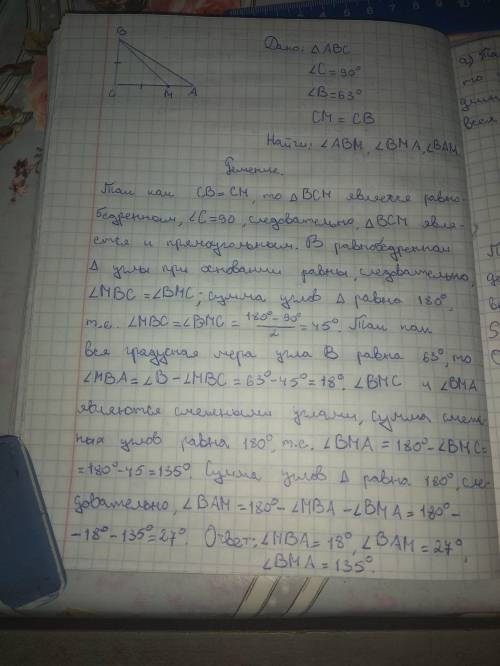 B
C
M
A
Дано: △ABC
∠C = 90°
∠B = 63°
CM = CB
Найти: ∠ABM, ∠BMA, ∠BAM
Решение.
Так как CB = CM, то △BCM является равно-
бедренным, ∠C=90, следовательно, △BCM явля-
ется и прямоугольным. В равнобедренном
△ углы при основании равны, следовательно,
∠MBC = ∠BMC; сумма углов △ равна 180°,
т.е. ∠MBC = ∠BMC = (180°-90°)/2 = 45°. Так как
вся градусная мера угла B равна 63°, то
∠MBA = ∠B - ∠MBC = 63° - 45° = 18°. ∠BMC и ∠BMA
являются смежными углами, сумма смеж-
ных углов равна 180°, т.е. ∠BMA = 180° - ∠BMC =
= 180° - 45 = 135°. Сумма углов △ равна 180°, сле-
довательно, ∠BAM = 180° - ∠MBA - ∠BMA = 180° -
- 18° - 135° = 27°. Ответ: ∠MBA = 18°, ∠BAM = 27°,
∠BMA = 135°.